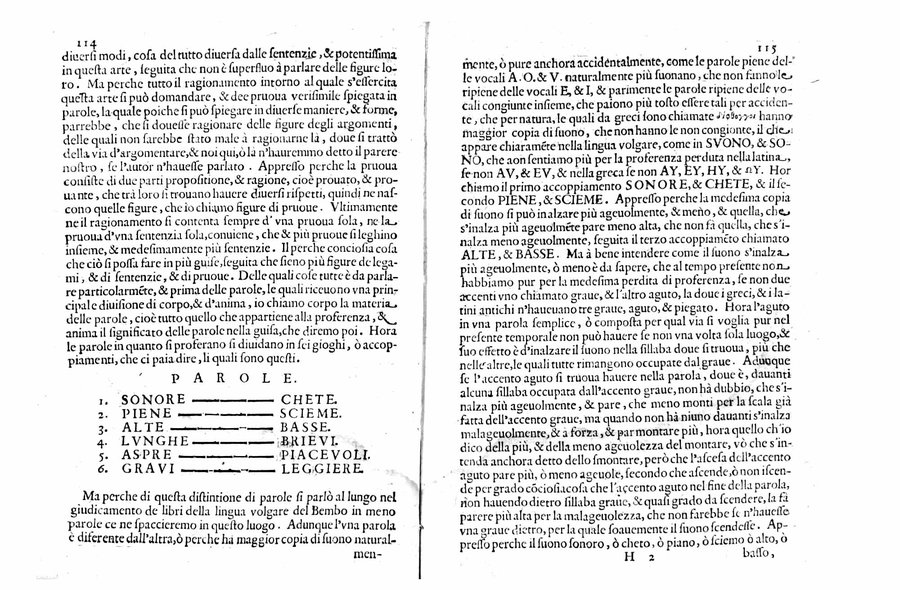 114
diuersi modi, cosa del tutto diuersa dalle sentenzie, & potentissima
in questa arte, seguita che non è superfluo à parlare delle figure lo-
ro. Ma perche tutto il ragionamento intorno al quale s'essercita
questa arte si può domandare, & dee pruoua verisimile spiegata in
parole, la quale poiche si può spiegare in diuerse maniere, & forme,
parrebbe, che si douesse ragionare delle figure degli argomenti,
delle quali non sarebbe stato male à ragionarne la, doue si trattò
della via d'argomentare, & noi qui, ò là n'hauremmo detto il parere
nostro, se l'autor n'hauesse parlato. Appresso perche la pruoua
consiste di due parti propositione, & ragione, cioè prouato, & pro-
uante, che trà loro si truouano hauere diuersi rispetti, quindi ne nas-
cono quelle figure, che io chiamo figure di pruoue. Vltimamente
ne il ragionamento si contenta sempre d'vna pruoua sola, ne la
pruoua d'vna sentenzia sola, conuiene, che & più pruoue si leghino
insieme, & medesimamente più sentenzie. Il perche conciosia cosa
che ciò si possa fare in più guise, seguita che sieno più figure de lega-
mi, & di sentenzie, & di pruoue. Delle quali cose tutte è da parla-
re particolarmēte, & prima delle parole, le quali riceuono vna prin-
cipale diuisione di corpo, & d'anima, io chiamo corpo la materia
delle parole, cioè tutto quello che appartiene alla proferenza, &
anima il significato delle parole nella guisa, che diremo poi. Hora
le parole in quanto si proferano si diuidano in sei gioghi, ò accop-
piamenti, che ci paia dire, li quali sono questi.
PAROLE.
1. SONORE ——— CHETE.
2. PIENE ——— SCIEME.
3. ALTE ——— BASSE.
4. LVNGHE ——— BRIEVI.
5. ASPRE ——— PIACEVOLI.
6. GRAVI ——— LEGGIERE.
Ma perche di questa distintione di parole si parlò al lungo nel
giudicamento de libri della lingua volgare del Bembo in meno
parole ce ne spaccieremo in questo luogo. Adunque l'vna parola
è diferente dall'altra, ò perche ha maggior copia di suono natural-
men-
115
mente, ò pure anchora accidentalmente, come le parole piene del-
le vocali A. O. & V. naturalmente più suonano, che non fanno le
ripiene delle vocali E, & I, & parimente le parole ripiene delle vo-
cali congiunte insieme, che paiono più tosto essere tali per acciden-
te, che per natura, le quali da greci sono chiamate hanno
maggior copia di suono, che non hanno le non congionte, il che
appare chiaramēte nella lingua volgare, come in SVONO, & SO-
NO, che non sentiamo più per la proferenza perduta nella latina,
se non AV, & EV, & nella greca se non AY, EY, HY, & ΩY. Hor
chiamo il primo accoppiamento SONORE, & CHETE, & il se-
condo PIENE, & SCIEME. Appresso perche la medesima copia
di suono si può inalzare più ageuolmente, & meno, & quella, che
s'inalza più ageuolmēte pare meno alta, che non fa quella, che s'i-
nalza meno ageuolmente, seguita il terzo accoppiamēto chiamato
ALTE, & BASSE. Ma à bene intendere come il suono s'inalza
più ageuolmente, ò meno è da sapere, che al tempo presente non
habbiamo pur per la medesima perdita di proferenza, se non due
accenti vno chiamato graue, & l'altro aguto, la doue i greci, & i la-
tini antichi n'haueuano tre graue, aguto, & piegato. Hora l'aguto
in vna parola semplice, ò composta per qual via si voglia pur nel
presente temporale non può hauere se non vna volta sola luogo, &
suo effetto è d'inalzare il suono nella sillaba doue si truoua, più che
nelle altre, le quali tutte rimangono occupate dal graue. Adunque
se l'accento aguto si truoua hauere nella parola, doue è, dauanti
alcuna sillaba occupata dall'accento graue, non hà dubbio, che s'i-
nalza più ageuolmente, & pare, che meno monti per la scala già
fatta dell'accento graue, ma quando non hà niuno dauanti s'inalza
malageuolmente, & a forza, & par montare più, hora quello ch'io
dico della più, & della meno ageuolezza del montare, vò che s'in-
tenda anchora detto dello smontare, però che l'ascesa dell'accento
aguto pare più, ò meno ageuole, secondo che ascende, ò non iscen-
de per grado cōciosiacosa che l'accento aguto nel fine della parola,
non hauendo dietro sillaba graue, & quasi grado da scendere, la fà
parere più alta per la malageuolezza, che non farebbe se n'hauesse
vna graue dietro, per la quale soauemente il suono scendesse. Ap-
presso perche il suono sonoro, ò cheto, ò piano, ò sciemo ò alto, ò
H 2 basso,